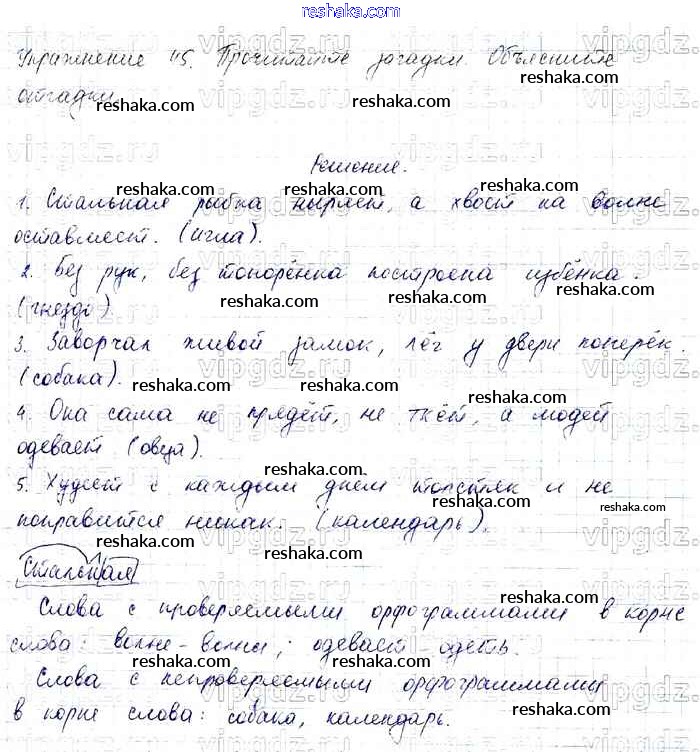 reshaka.com
Упражнение 45. Прочитайте загадки. Объясните
отгадки.
Решение.
1. Стальная рыбка ныряет, а хвост на волне
оставляет. (игла).
2. Без рук, без топорёнка построена избёнка.
(гнездо)
3. Заворчал живой замок, лёг у двери поперёк.
(собака).
4. Она сама не прядёт, не ткёт, а людей
одевает (овца).
5. Худеет с каждым днем толстяк и не
поправится никак. (календарь).
Стальная
Слова с проверяемыми орфограммами в корне
слова: волне - волны; одевает - одеть.
Слова с непроверяемыми орфограммами
в корне слова: собака, календарь.